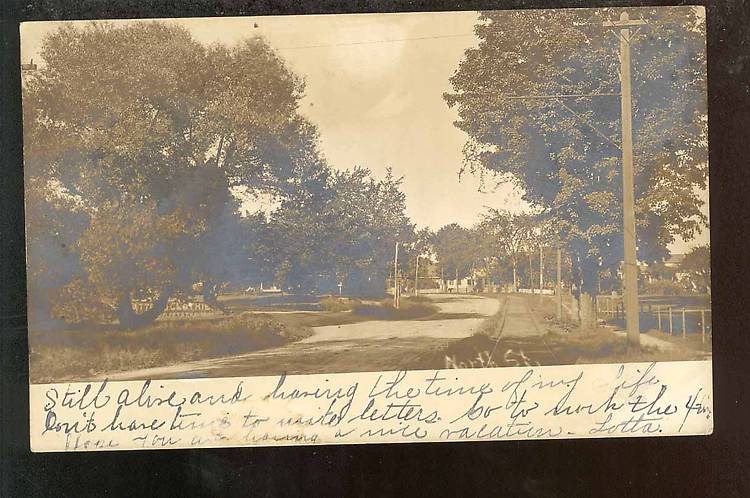 North St.
Still alive and having the time of my life
Don't have time to write letters. Go to work the 4th.
Hope you are having a nice vacation - Lotta.